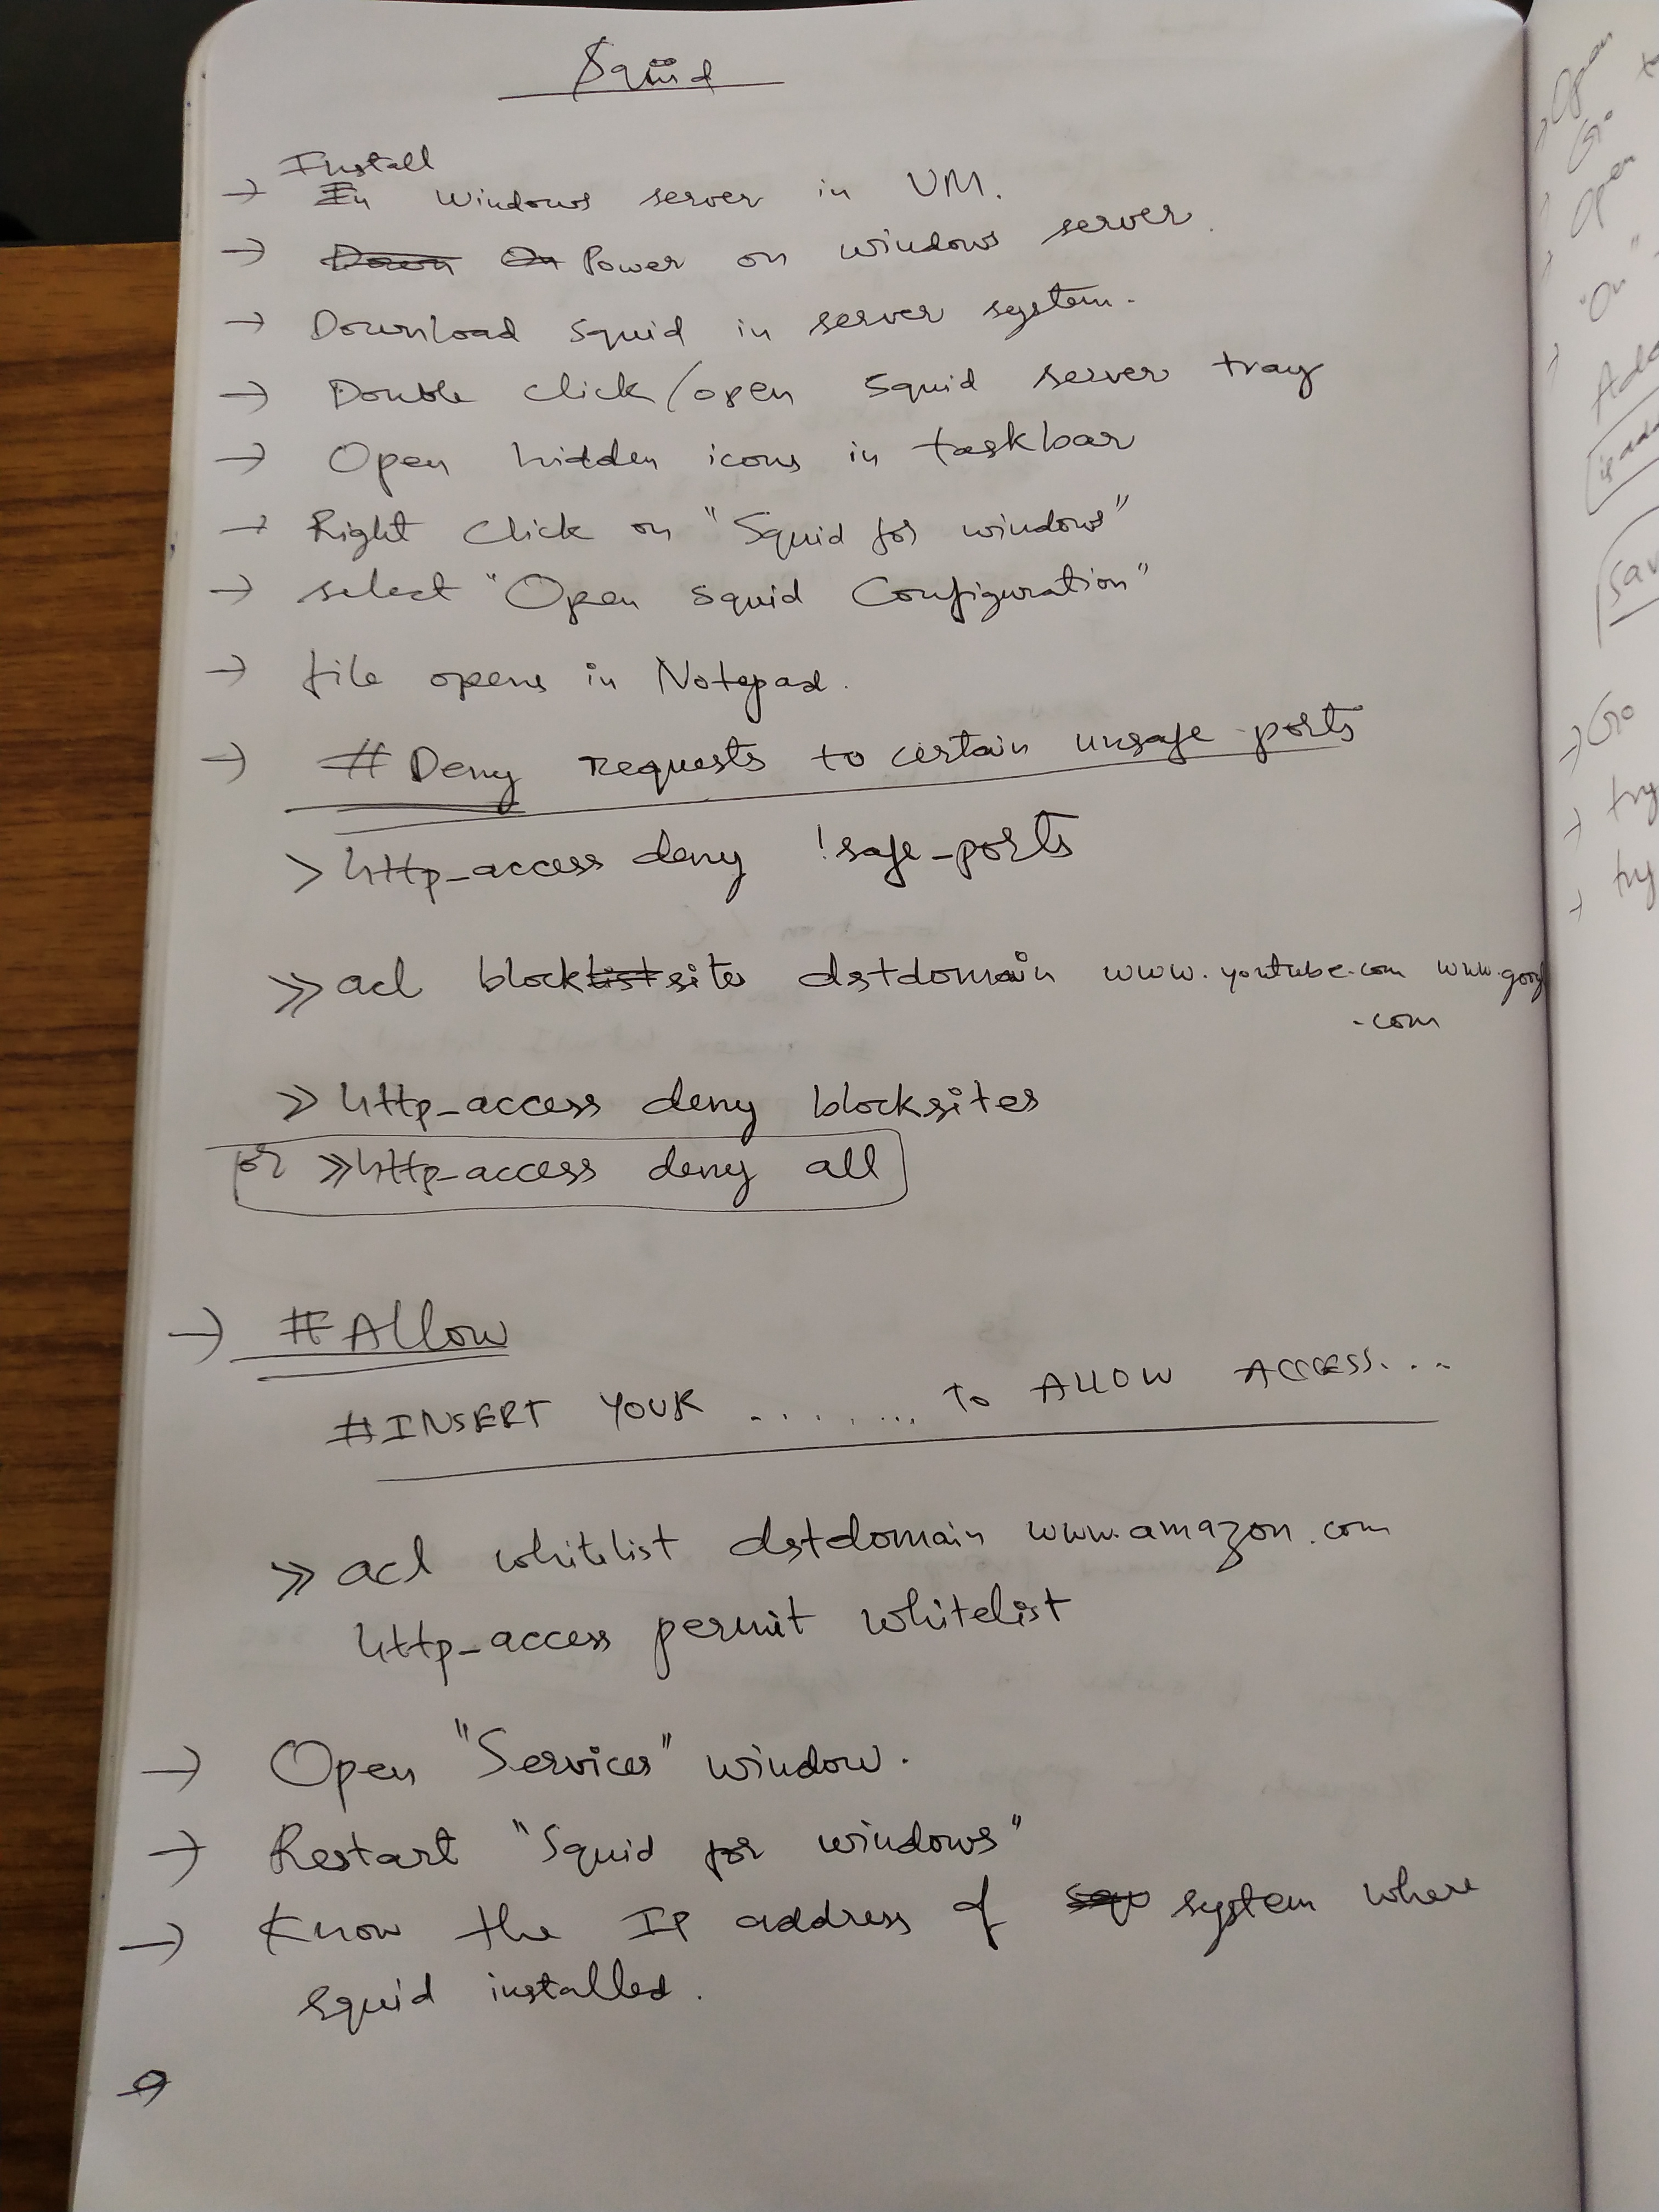 Squid
Install
→ In Windows server in VM.
→ Down On Power on windows server.
→ Download squid in server system.
→ Double click/open squid server tray
→ Open hidden icons in taskbar
→ Right click on "Squid for windows"
→ select "Open squid Configuration"
→ file opens in Notepad.
→ # Deny requests to certain unsafe ports
> http_access deny !safe_ports
>> acl blocklistsites dstdomain www.youtube.com www.goog
.com
>> http_access deny blocksites
or >> http_access deny all
→ # Allow
# INSERT YOUR ........ to ALLOW ACCESS...
>> acl whitelist dstdomain www.amazon.com
http_access permit whitelist
→ Open "Services" window.
→ Restart "Squid for windows"
→ Know the IP address of system where
squid installed.
→
→ Open
Go
Open
"On"
→ Go
→ try
→ try